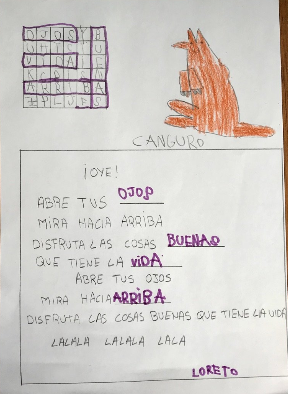 CANGURO
¡OYE!
ABRE TUS OJOS
MIRA HACIA ARRIBA
DISFRUTA LAS COSAS BUENAS
QUE TIENE LA VIDA
ABRE TUS OJOS
MIRA HACIA ARRIBA
DISFRUTA LAS COSAS BUENAS QUE TIENE LA VIDA
LALALA LALALA LALA
LORETO